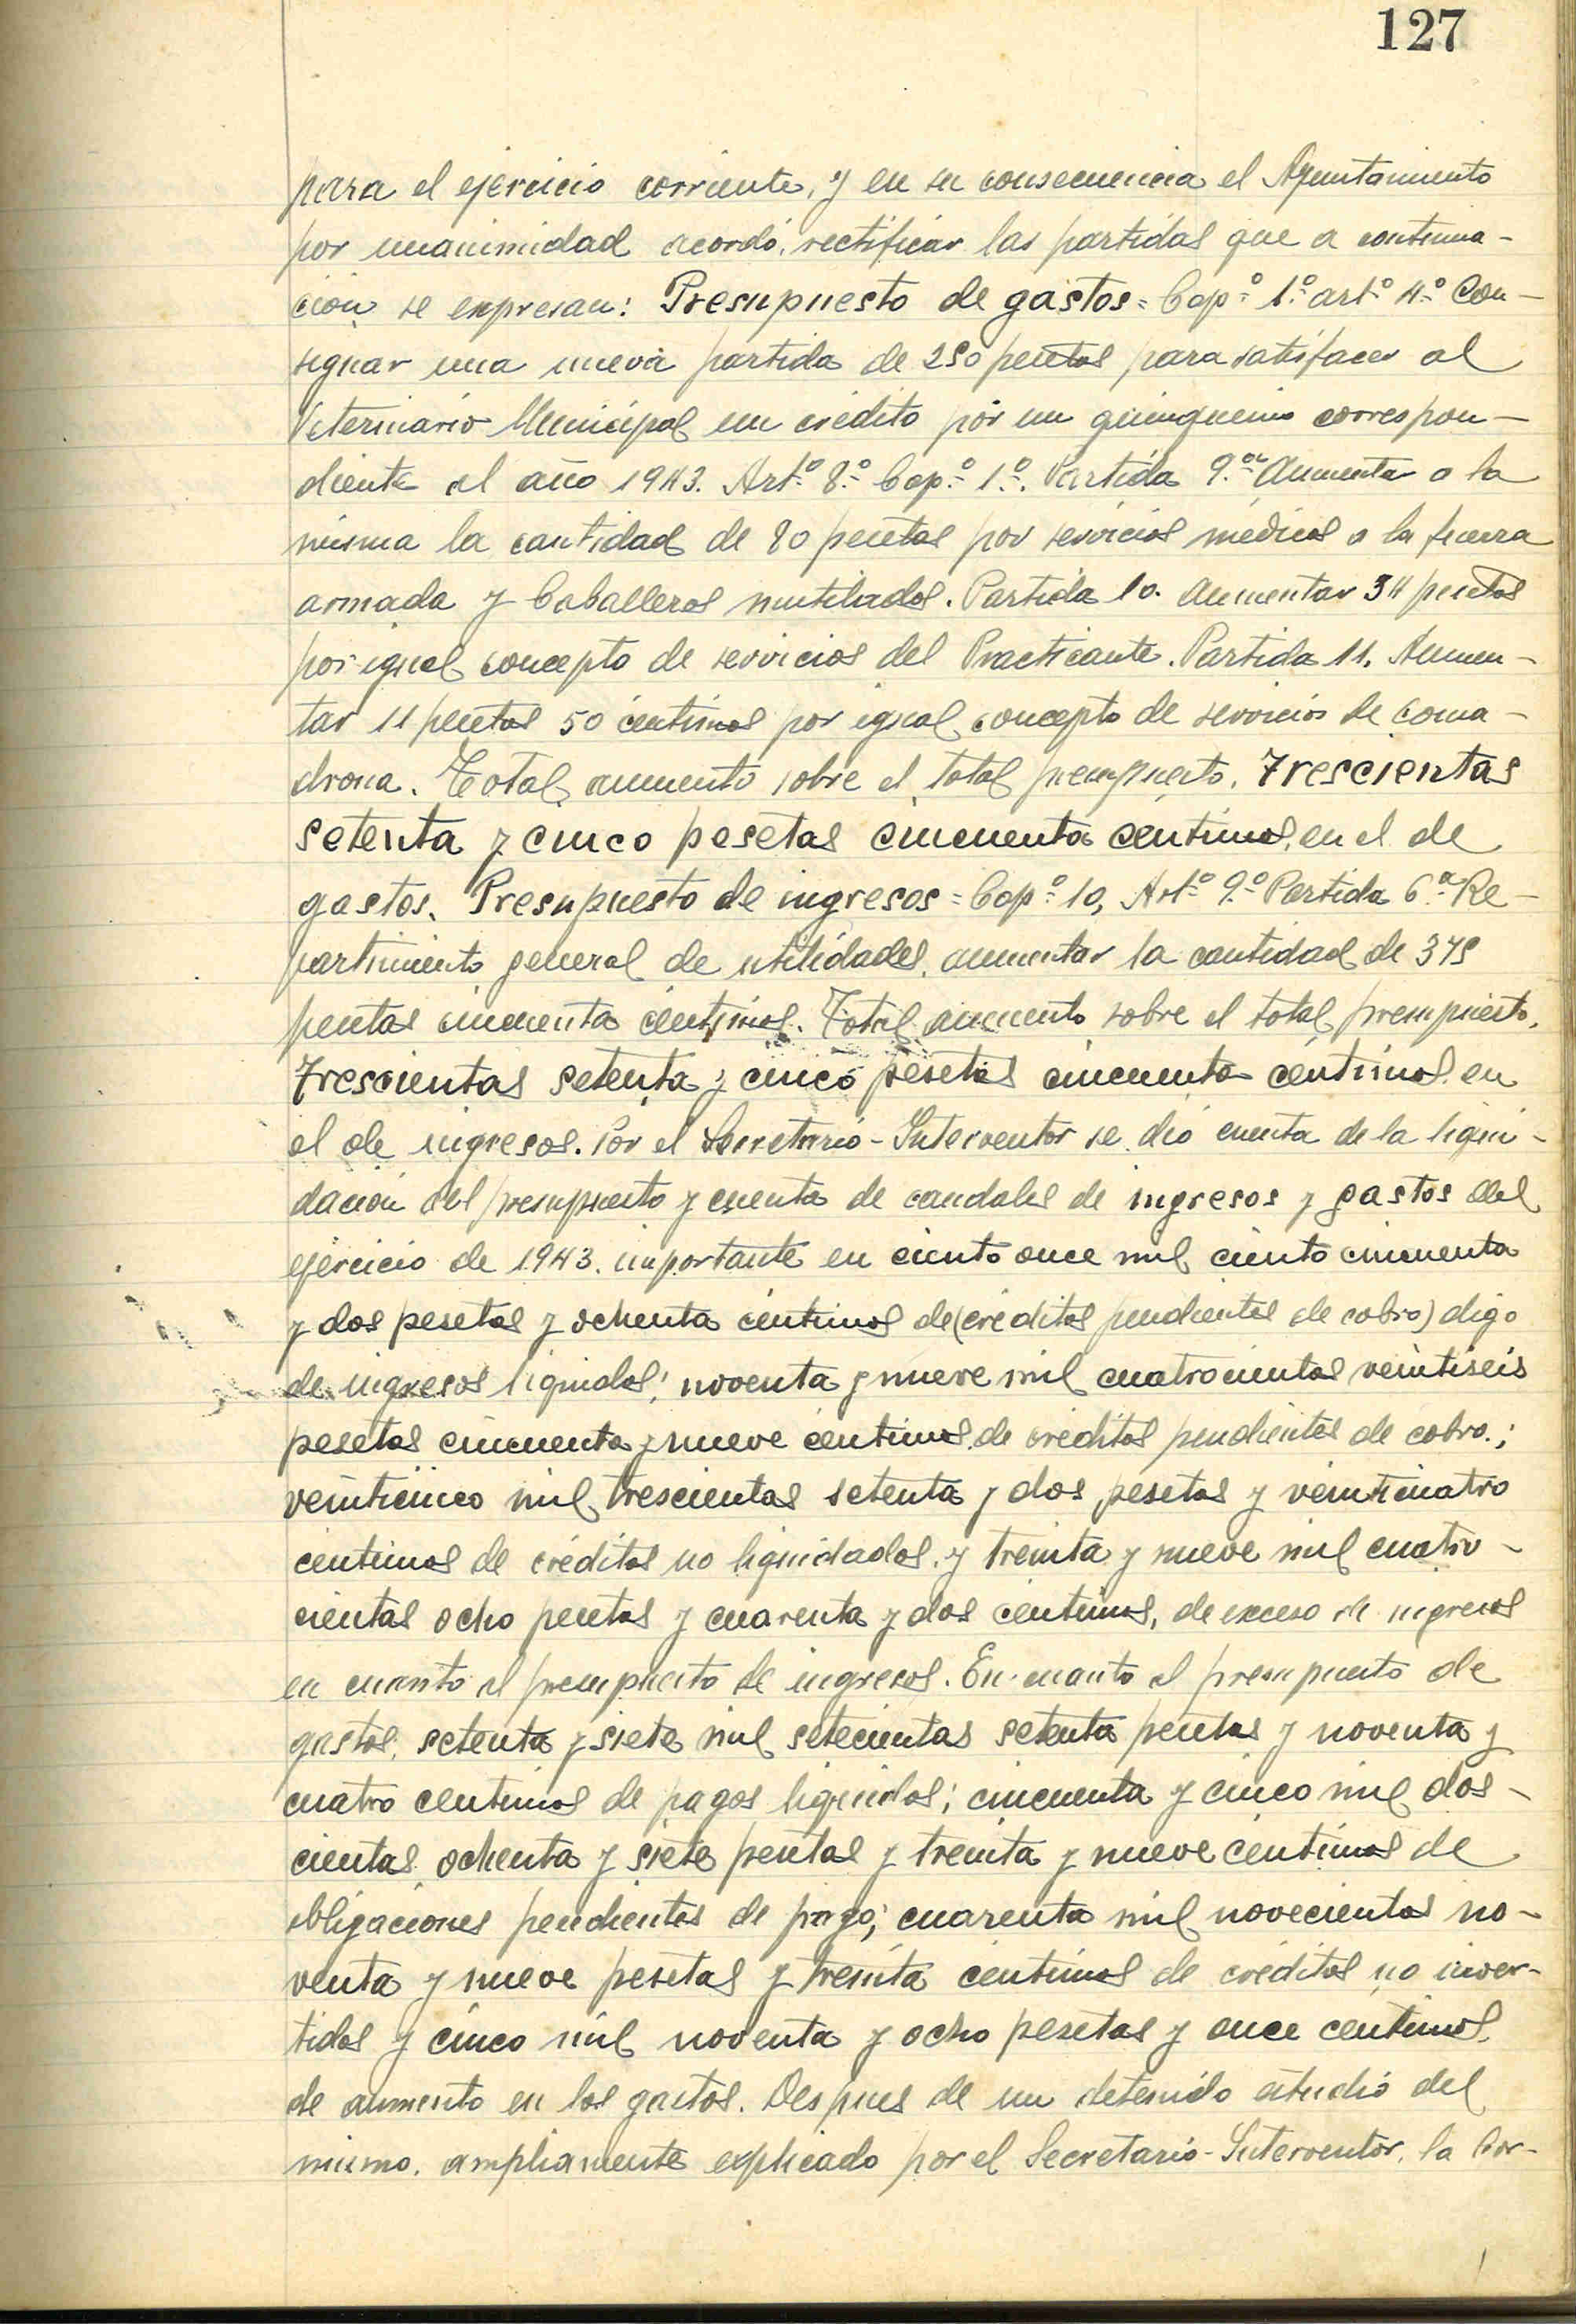 127
para el ejercicio corriente, y en su consecuencia el Ayuntamiento
por unanimidad acordó, rectificar las partidas que a continua-
ción se expresan: Presupuesto de gastos = Cap.º 1.º art.º 4.º Con-
signar una nueva partida de 250 pesetas para satisfacer al
Veterinario Municipal un crédito por un quinquenio correspon-
diente al año 1943. Art.º 8.º Cap.º 1.º. Partida 9.ª Aumentar a la
misma la cantidad de 80 pesetas por servicios médicos a la fuerza
armada y Caballeros mutilados. Partida 10. Aumentar 34 pesetas
por igual concepto de servicios del Practicante. Partida 11. Aumen-
tar 11 pesetas 50 céntimos por igual concepto de servicios de coma-
drona. Total aumento sobre el total presupuesto. Trescientas
setenta y cinco pesetas cincuenta centimos, en el de
gastos. Presupuesto de ingresos = Cap.º 10, Art.º 9.º Partida 6.ª Re-
partimiento general de utilidades, aumentar la cantidad de 375
pesetas cincuenta céntimos. Total aumento sobre el total presupuesto.
Trescientas setenta y cinco pesetas cincuenta céntimos en
el de ingresos. Por el Secretario-Interventor se dió cuenta de la liqui-
dación del presupuesto y cuenta de caudales de ingresos y gastos del
ejercicio de 1943. importante en ciento once mil ciento cincuenta
y dos pesetas y ochenta céntimos de (créditos pendientes de cobro) digo
de ingresos liquidos; noventa y nueve mil cuatrocientas veintiseis
pesetas cincuenta y nueve centimos de créditos pendientes de cobro.;
veinticinco mil trescientas setenta y dos pesetas y veinticuatro
centimos de créditos no liquidados. y treinta y nueve mil cuatro-
cientas ocho pesetas y cuarenta y dos céntimos, de exceso de ingresos
en cuanto al presupuesto de ingresos. En cuanto al presupuesto de
gastos, setenta y siete mil setecientas setenta pesetas y noventa y
cuatro centimos de pagos liquidos; cincuenta y cinco mil dos-
cientas ochenta y siete pesetas y treinta y nueve centimos de
obligaciones pendientes de pago; cuarenta mil novecientas no-
venta y nueve pesetas y treinta céntimos de créditos no inver-
tidos y cinco mil noventa y ocho pesetas y once centimos,
de aumento en los gastos. Despues de un detenido estudio del
mismo. ampliamente explicado por el Secretario-Interventor, la Cor-